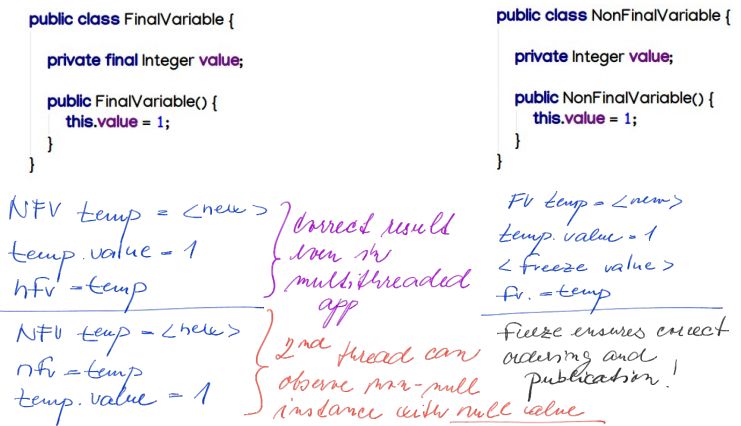 public class FinalVariable {
private final Integer value;
public FinalVariable() {
this.value = 1;
}
}
public class NonFinalVariable {
private Integer value;
public NonFinalVariable() {
this.value = 1;
}
}
NFV temp = <new>
temp.value = 1
nfv = temp
correct result
even in
multithreaded
app
NFV temp = <new>
nfv = temp
temp.value = 1
2nd thread can
observe non-null
instance with null value
FV temp = <new>
temp.value = 1
<freeze value>
fv. = temp
freeze ensures correct
ordering and
publication!